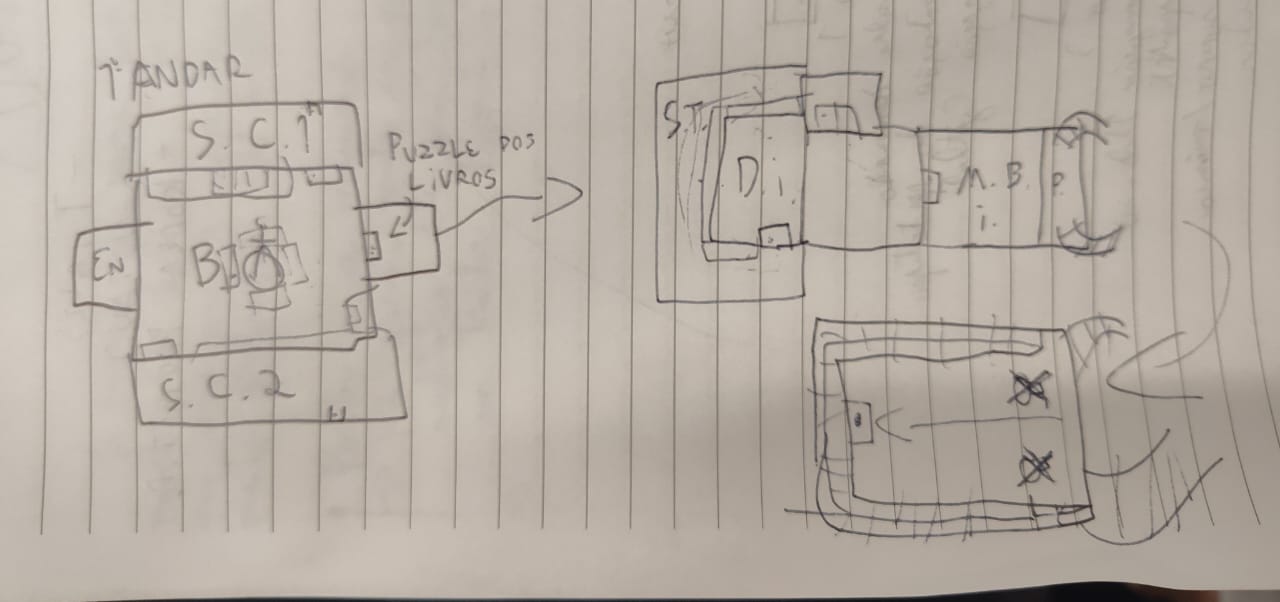 1º ANDAR
S. C. 1
PUZZLE DOS
LIVROS
EN
B
S. C. 2
S.T.
D.i.
M. B.
i.
P.